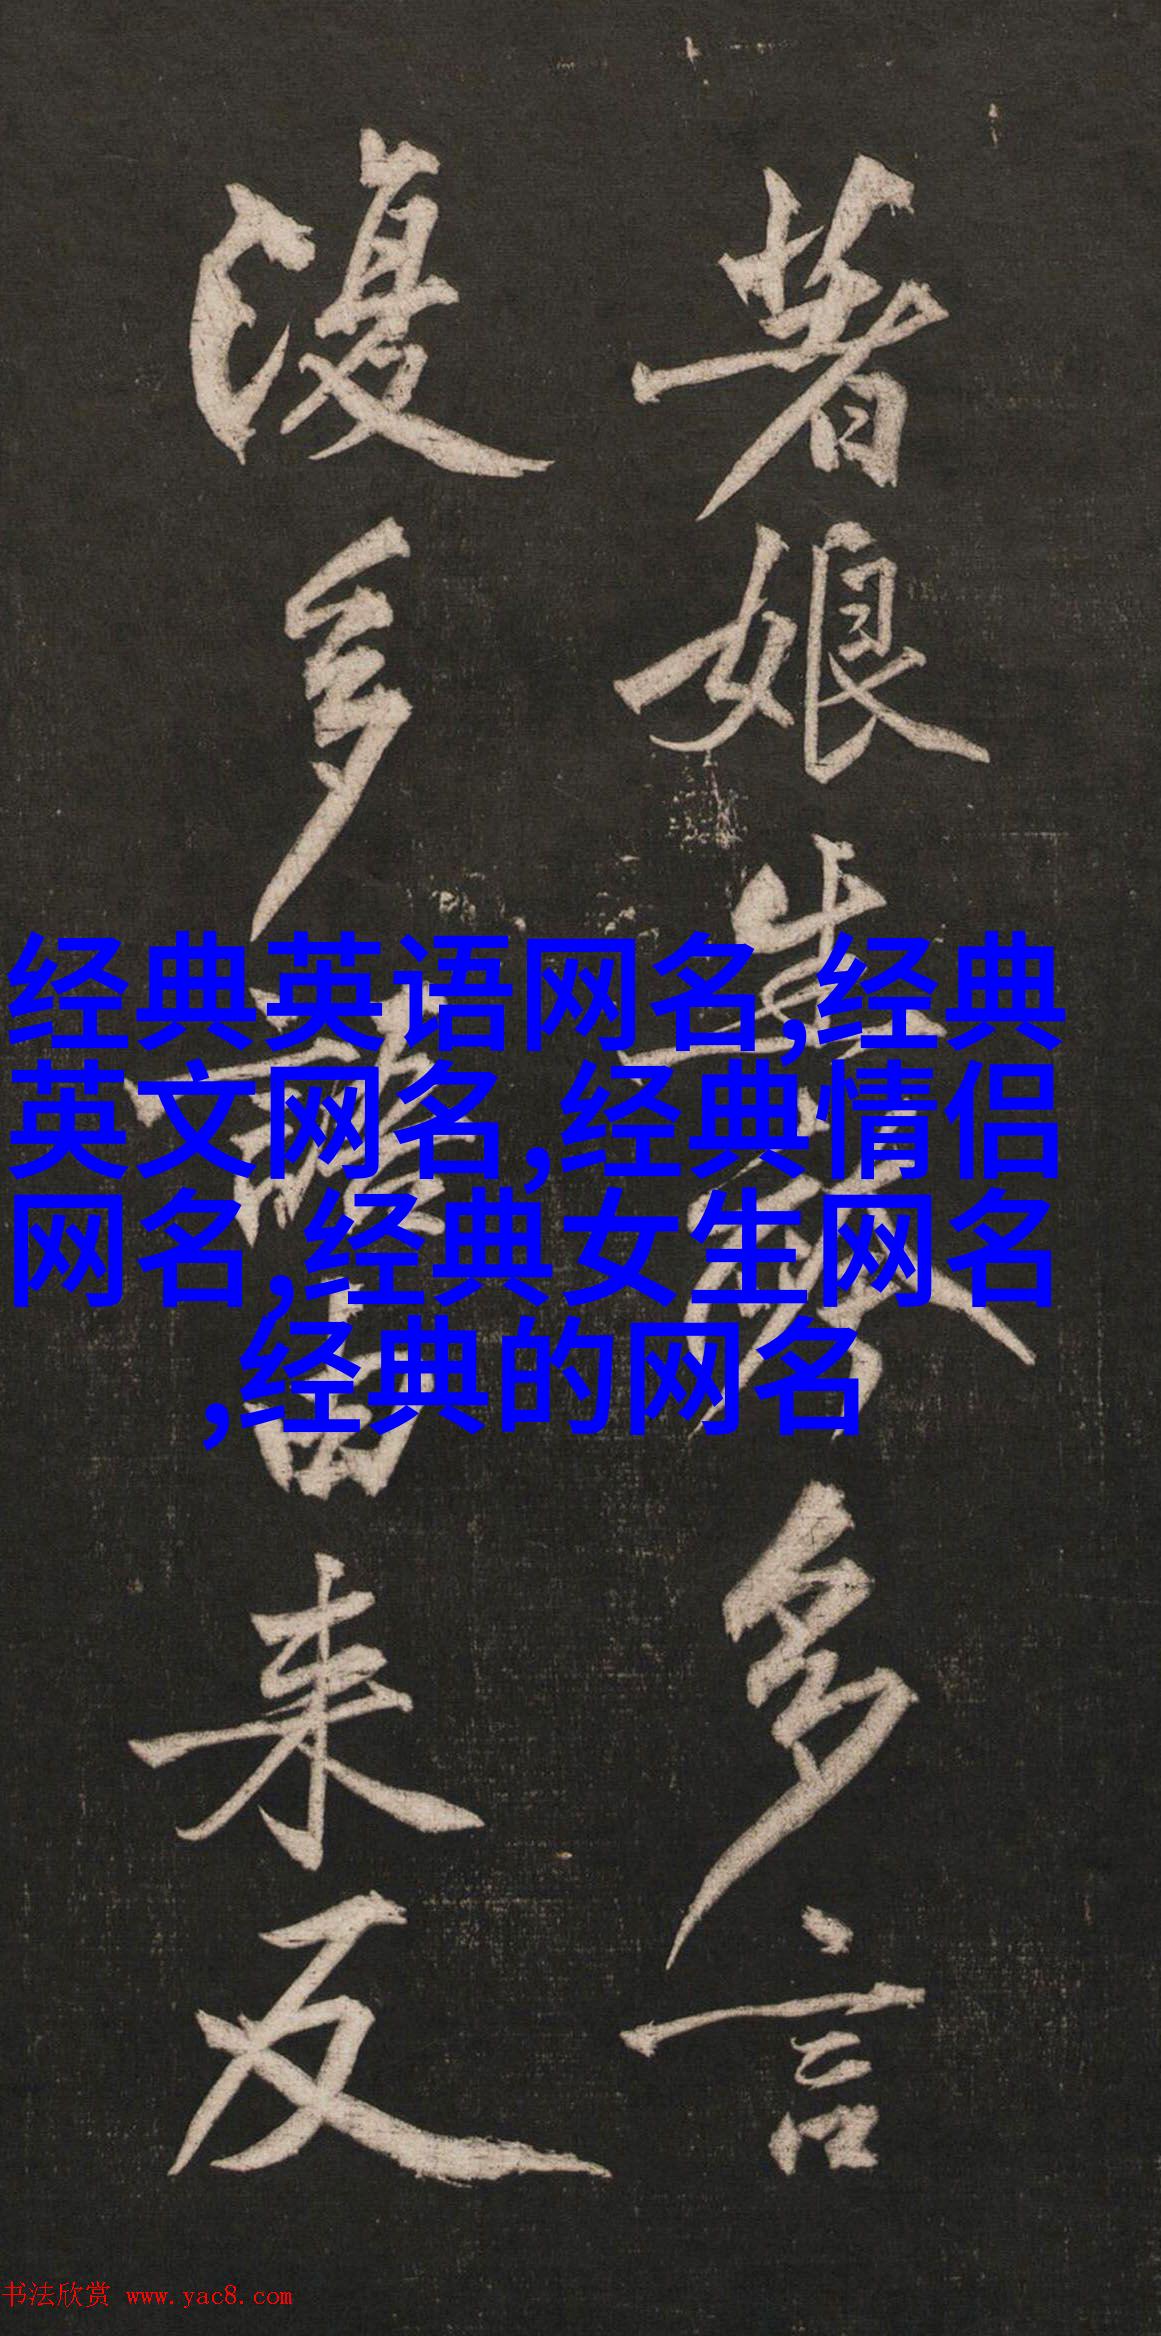 者娘多言
復多由来反
经典英语网名,经典
英文网名,经典情侣
网名,经典女生网名
,经典的网名
书法欣赏 www.yac8.com